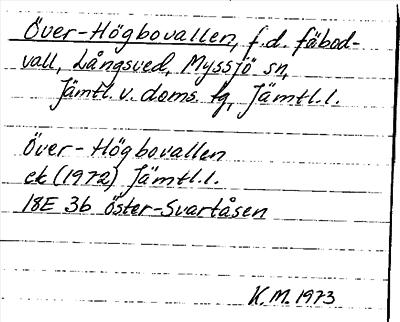 Över-Högbovallen, f.d. fäbod-
vall, Långsved, Myssjö sn,
Jämtl. v. doms. tg, Jämtl.l.
Över-Högbovallen
ek (1972) Jämtl.l.
18E 3b Öster-Svartåsen
K.M. 1973